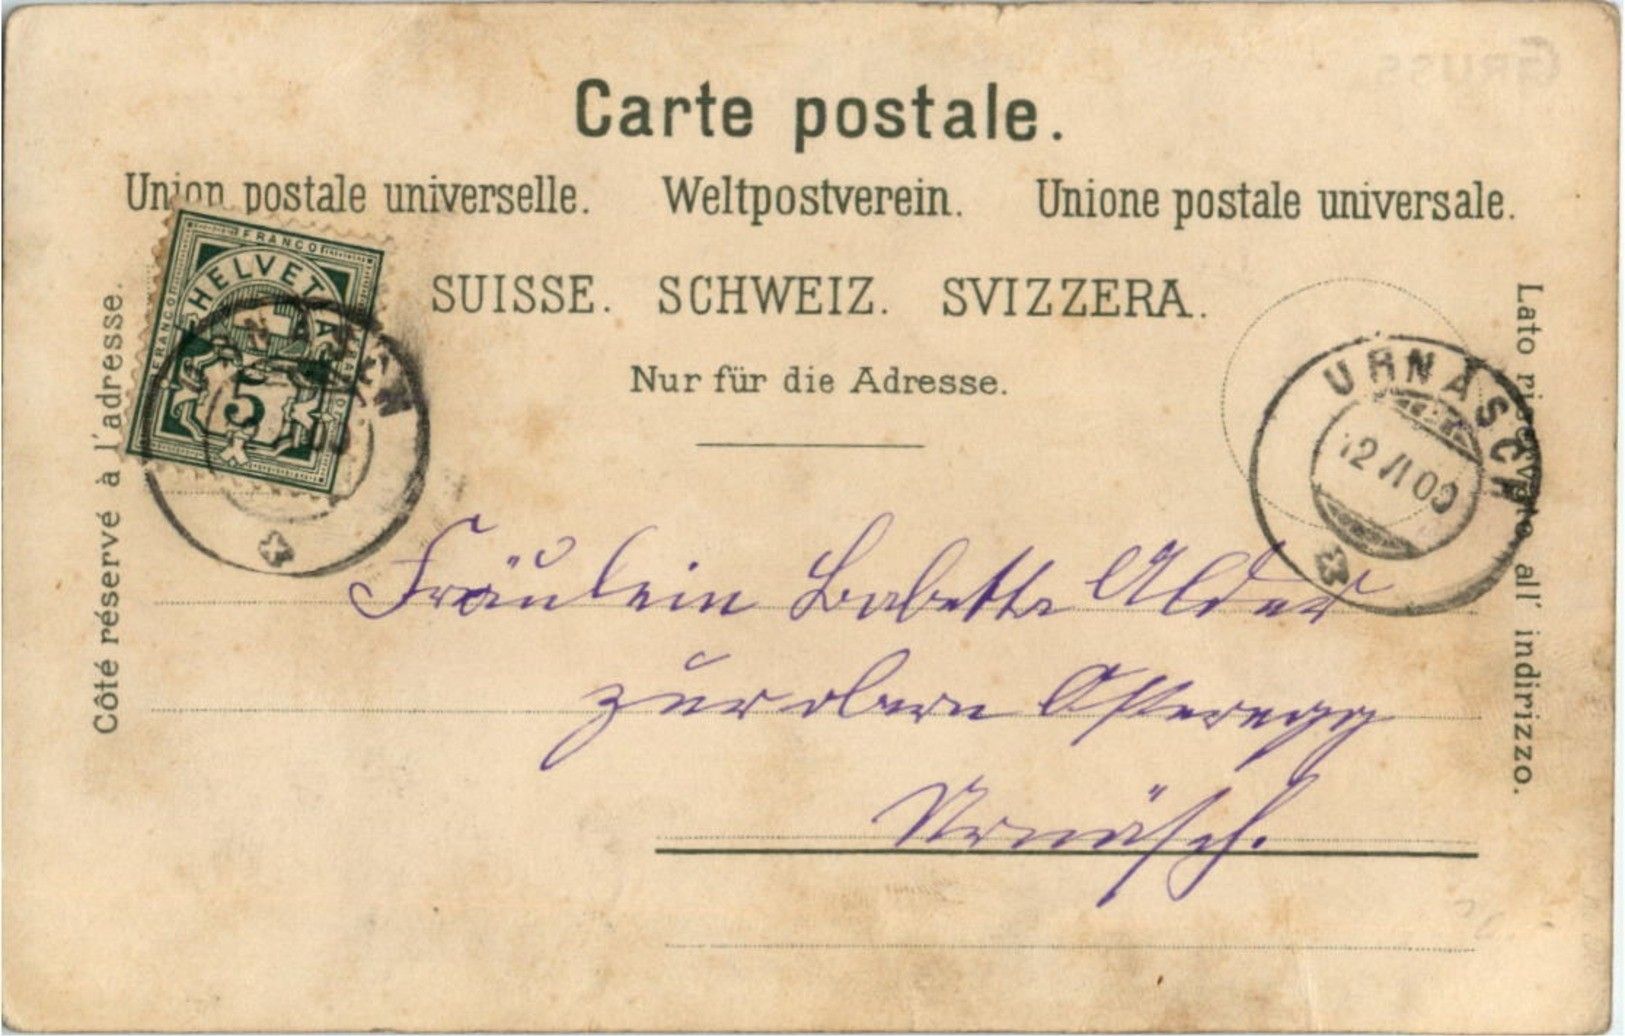 Carte postale.
Union postale universelle. Weltpostverein. Unione postale universale.
SUISSE. SCHWEIZ. SVIZZERA.
Nur für die Adresse.
Côté réservé à l'adresse.
FRANCO
HELVETIA
FRANCO
5
URNÄSCH
12 VI 00
Lato riservato all' indirizzo.
Fräulein Babette Alder
zur obern Osteregg
Urnäsch.
GRUSS